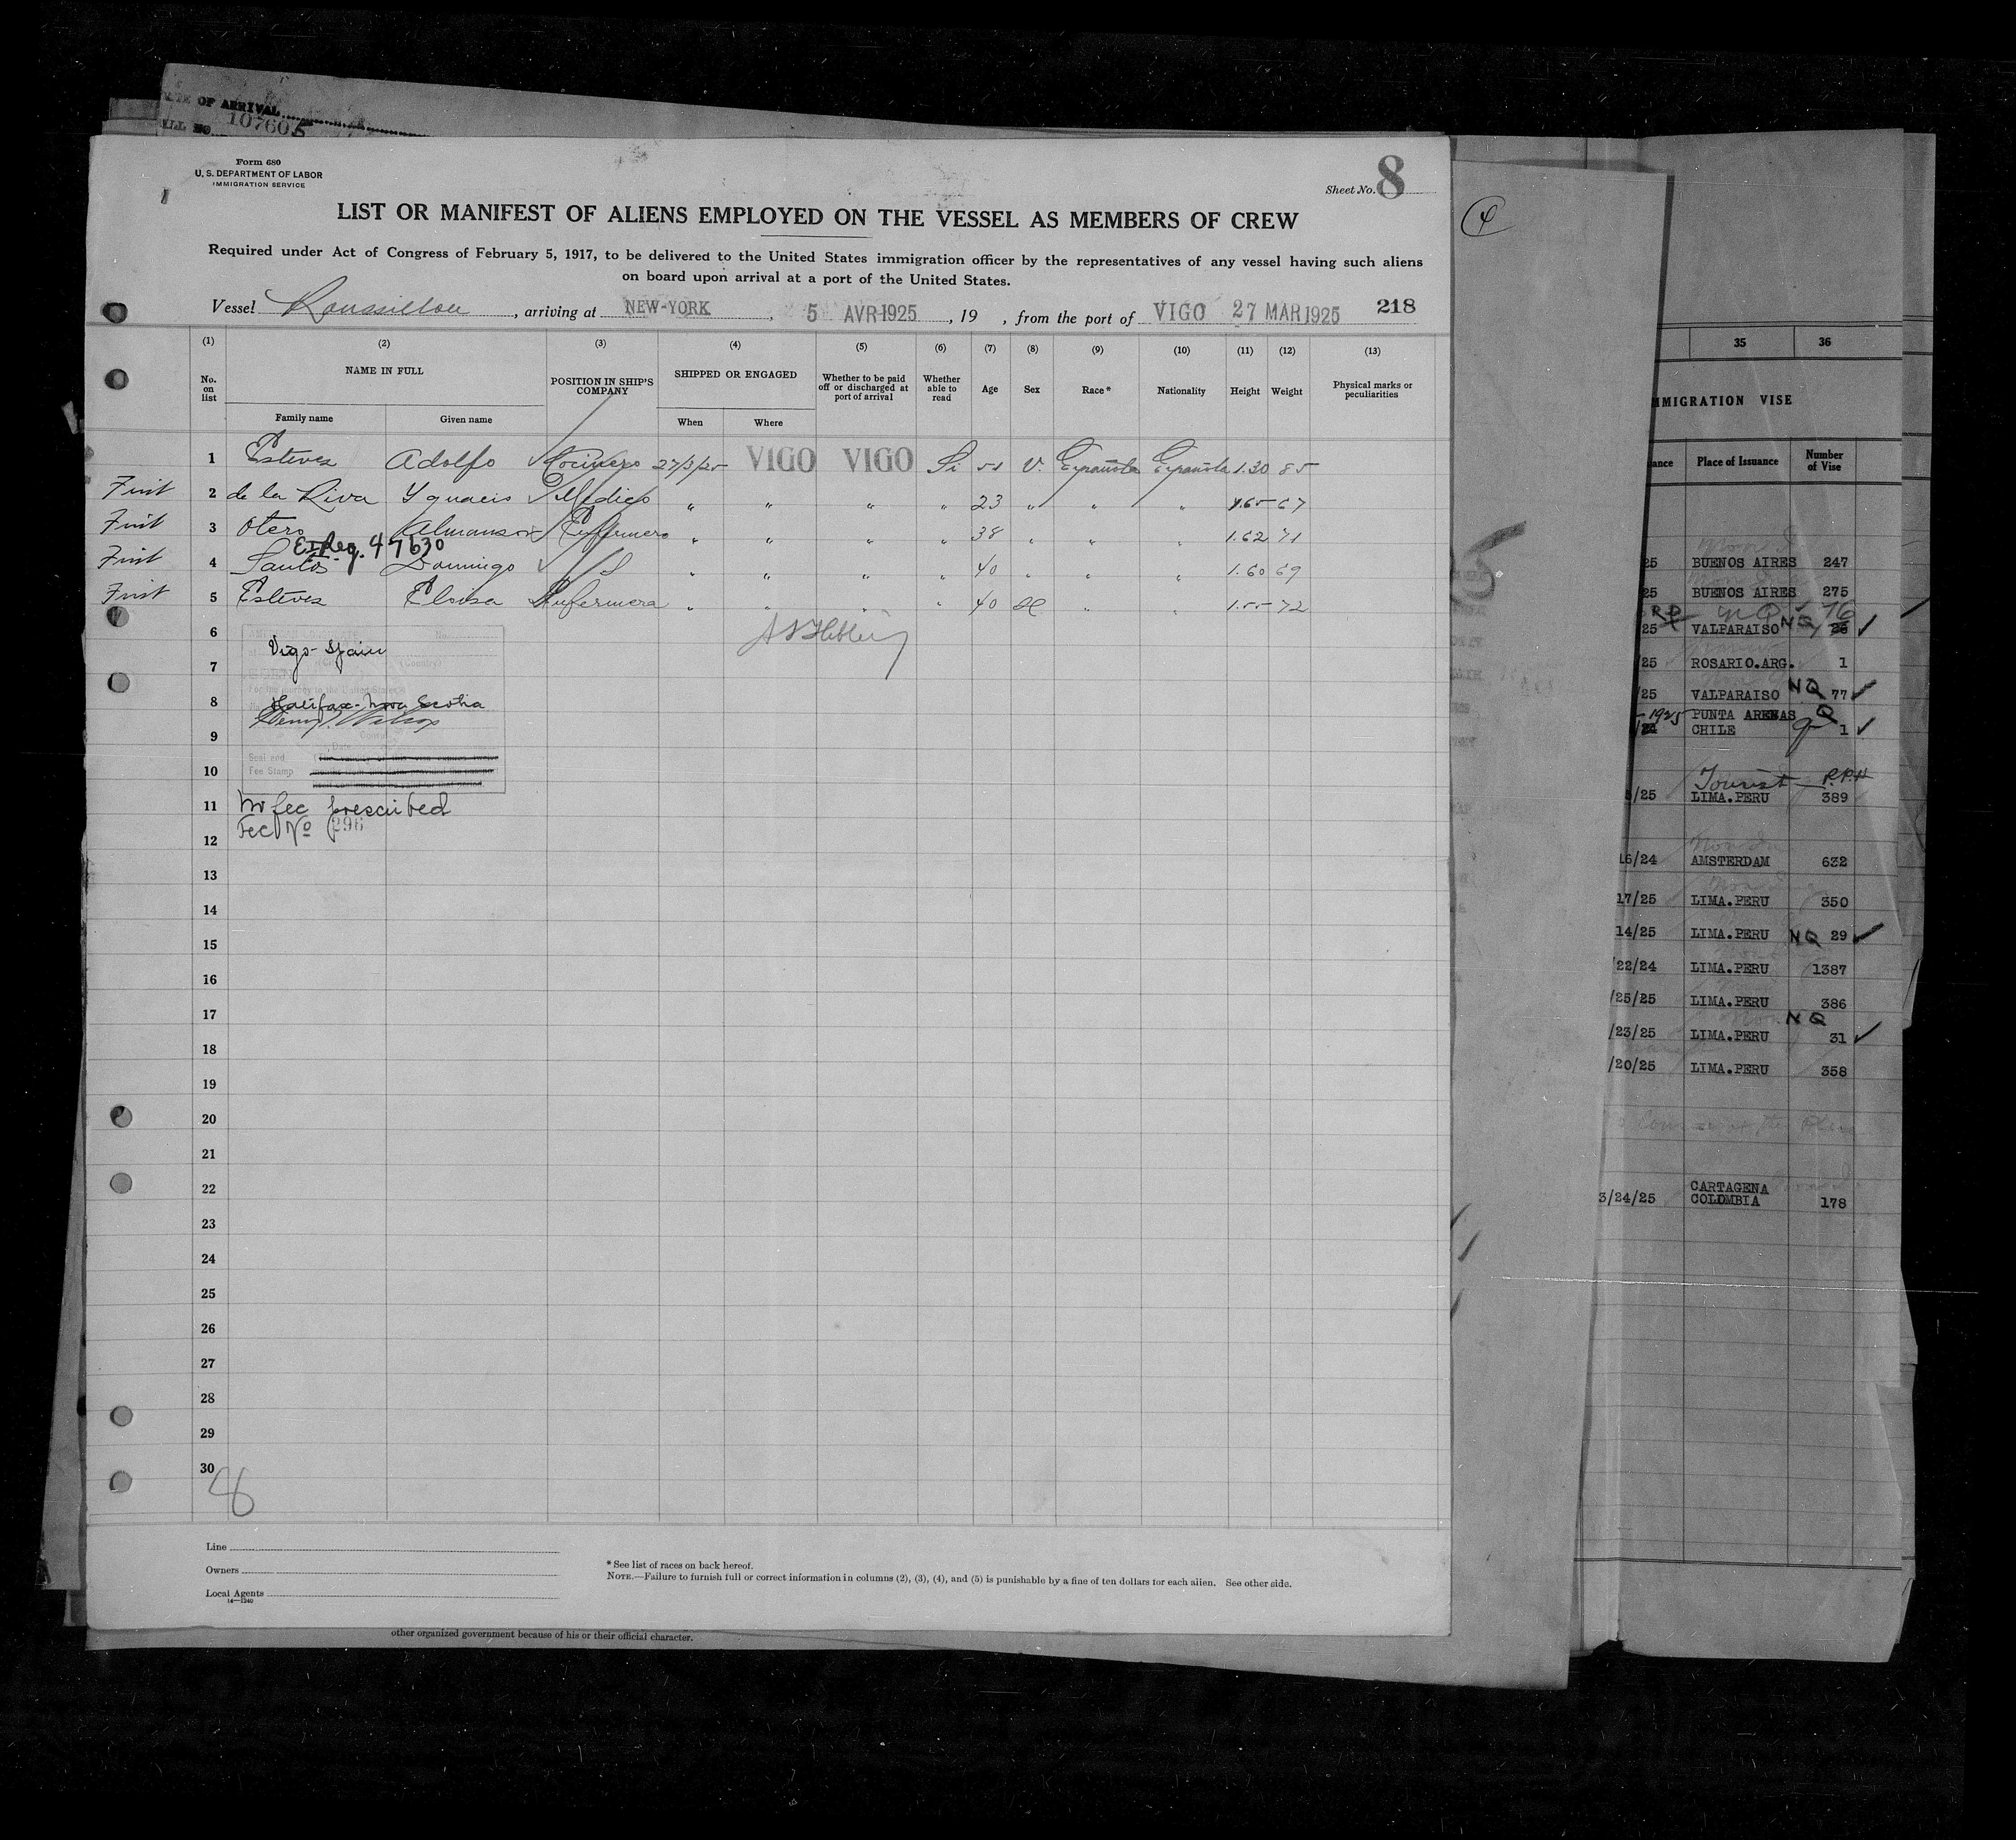 OF ARRIVAL
107605
Form 680
U. S. DEPARTMENT OF LABOR
IMMIGRATION SERVICE
Sheet No. 8
LIST OR MANIFEST OF ALIENS EMPLOYED ON THE VESSEL AS MEMBERS OF CREW
Required under Act of Congress of February 5, 1917, to be delivered to the United States immigration officer by the representatives of any vessel having such aliens
on board upon arrival at a port of the United States.
Vessel Roussillon, arriving at NEW-YORK, 5 AVR 1925, 19 , from the port of VIGO 27 MAR 1925 218
(1) (2) (3) (4) (5) (6) (7) (8) (9) (10) (11) (12) (13)
No. on list NAME IN FULL POSITION IN SHIP'S COMPANY SHIPPED OR ENGAGED Whether to be paid off or discharged at port of arrival Whether able to read Age Sex Race* Nationality Height Weight Physical marks or peculiarities
Family name Given name When Where
1 Estevez Adolfo Cocinero 27/3/25 VIGO VIGO Si 51 V. Española Española 1.30 85
First 2 de la Riva Ygnacio Médico " " " " 23 " " " 1.65 67
First 3 Otero Almanson Enfermero " " " " 38 " " " 1.62 71
Reg. 47630
First 4 Santos Domingo " " " " 40 " " " 1.60 69
First 5 Estevez Eloisa Enfermera " " " " 40 1.55 72
6
Vigo - Spain
7
For the journey to the United States
8 Halifax - Nova Scotia
Henry T. Wilcox
9
10
Seal and
Fee Stamp
11 No fee prescribed
Fec No 296
12
13
14
15
16
17
18
19
20
21
22
23
24
25
26
27
28
29
30
8
Line
Owners
Local Agents
14—1240
* See list of races on back hereof.
NOTE.—Failure to furnish full or correct information in columns (2), (3), (4), and (5) is punishable by a fine of ten dollars for each alien. See other side.
other organized government because of his or their official character.
4
35 36
IMMIGRATION VISE
Place of Issuance Number of Vise
25 BUENOS AIRES 247
25 BUENOS AIRES 275
NQ 76
25 VALPARAISO 26
/25 ROSARIO.ARG. 1
/25 VALPARAISO NQ 77
1925 PUNTA ARENAS Q
CHILE 1
Tourist
/25 LIMA.PERU 389
16/24 AMSTERDAM 632
17/25 LIMA.PERU 350
14/25 LIMA.PERU NQ 29
/22/24 LIMA.PERU 1387
/25/25 LIMA.PERU 386
NQ
/23/25 LIMA.PERU 31
/20/25 LIMA.PERU 358
CARTAGENA
3/24/25 COLOMBIA 178